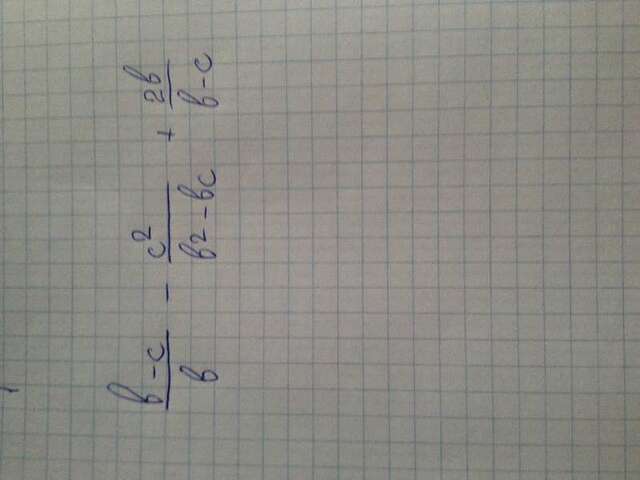 b-c/b - c²/b²-bc + 2b/b-c